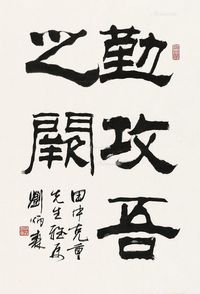 勤攻吾
之闕
田中克重
先生雅属
劉炳森